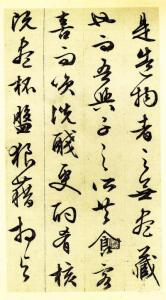 是造物者之無盡藏
也而吾與子之所共食客
喜而笑洗盞更酌肴核
既盡杯盤狼藉相與